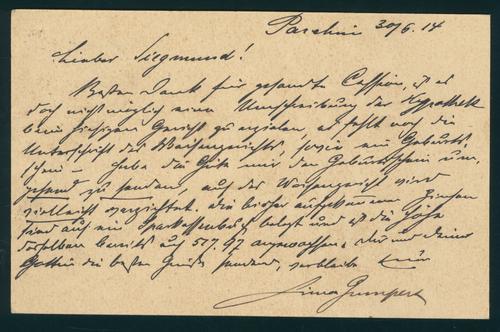 Parchim 30/6. 14
Lieber Siegmund!
Besten Dank für gesandte Cession, ist es
doch nicht möglich eine Umschreibung der Hypothek
beim hiesigen Gericht zu erzielen, es fehlt noch die
Unterschrift des Waisengerichts, sowie ein Geburts
schein – habe die Güte mir den Geburtsschein um-
gehend zu senden, auf das Waisengericht wird
vielleicht verzichtet. Die bisher aufgekommenen Zinsen
sind auf ein Sparkassenbuch belegt und ist die Höhe
desselben bereits auf 517.97 angewachsen. Dir und Deiner
Gattin die besten Grüße sendend, verbleibe Euer
Gumpert